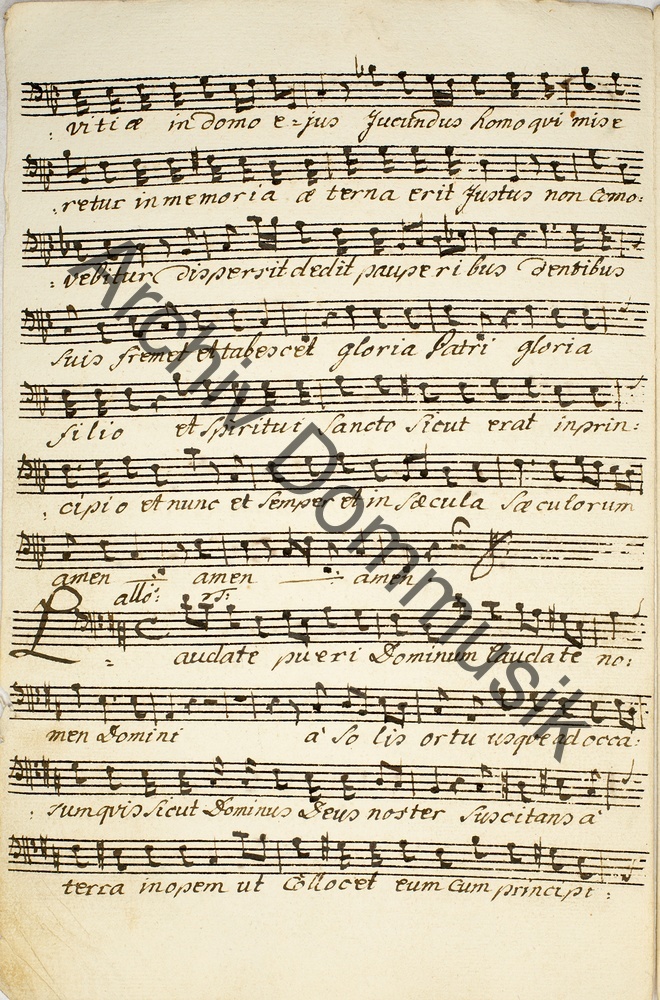 : vitiæ in domo e=jus Jucundus homo qui mise
: retur in memoria æterna erit Justus non Como:
: vebitur dispersit dedit pauperibus dentibus
suis fremet et tabescet gloria Patri gloria
filio et Spiritui Sancto Sicut erat in prin:
: cipio et nunc et Semper et in Sæcula Sæculorum
amen amen amen
allo:
Laudate pueri Dominum Laudate no:
men Domini a' So lis ortu usque ad occa:
: sum quis Sicut Dominus Deus noster Suscitans a'
terra inopem ut Collocet eum Cum principi:
Archiv Dommusik